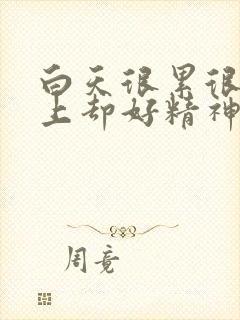 白天很累很
上却好精神
周竟